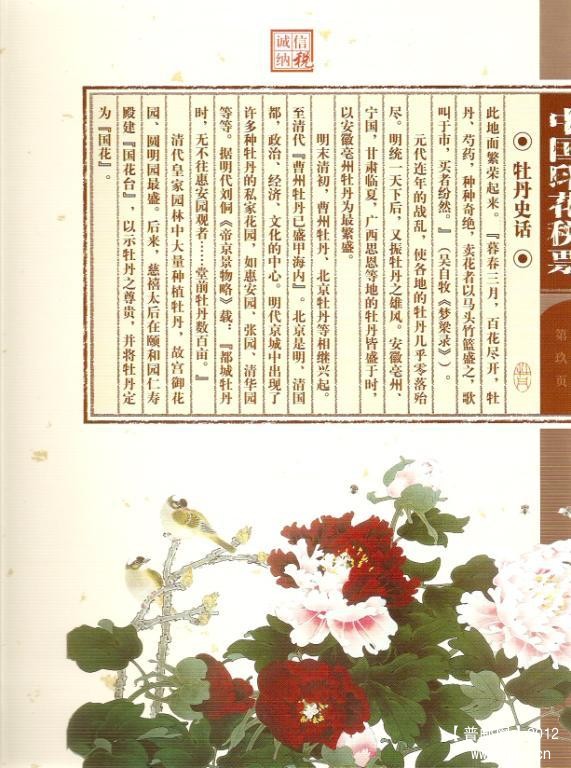 诚信
纳税
中国印花税票
第玖页
牡丹史话
此地而繁荣起来。『暮春三月，百花尽开，牡
丹、芍药，种种奇绝，卖花者以马头竹篮盛之，歌
叫于市，买者纷然。』（吴自牧《梦梁录》）。
元代连年的战乱，使各地的牡丹几乎零落殆
尽。明统一天下后，又振牡丹之雄风。安徽亳州、
宁国，甘肃临夏、广西思恩等地的牡丹皆盛于时，
以安徽亳州牡丹为最繁盛。
明末清初，曹州牡丹、北京牡丹等相继兴起。
至清代『曹州牡丹已盛甲海内』。北京是明、清国
都，政治、经济、文化的中心。明代京城中出现了
许多种牡丹的私家花园，如惠安园、张园、清华园
等等。据明代刘侗《帝京景物略》载：『都城牡丹
时，无不往惠安园观者……堂前牡丹数百亩。』
清代皇家园林中大量种植牡丹，故宫御花
园、圆明园最盛。后来，慈禧太后在颐和园仁寿
殿建『国花台』，以示牡丹之尊贵，并将牡丹定
为『国花』。
2012
www.
.cn